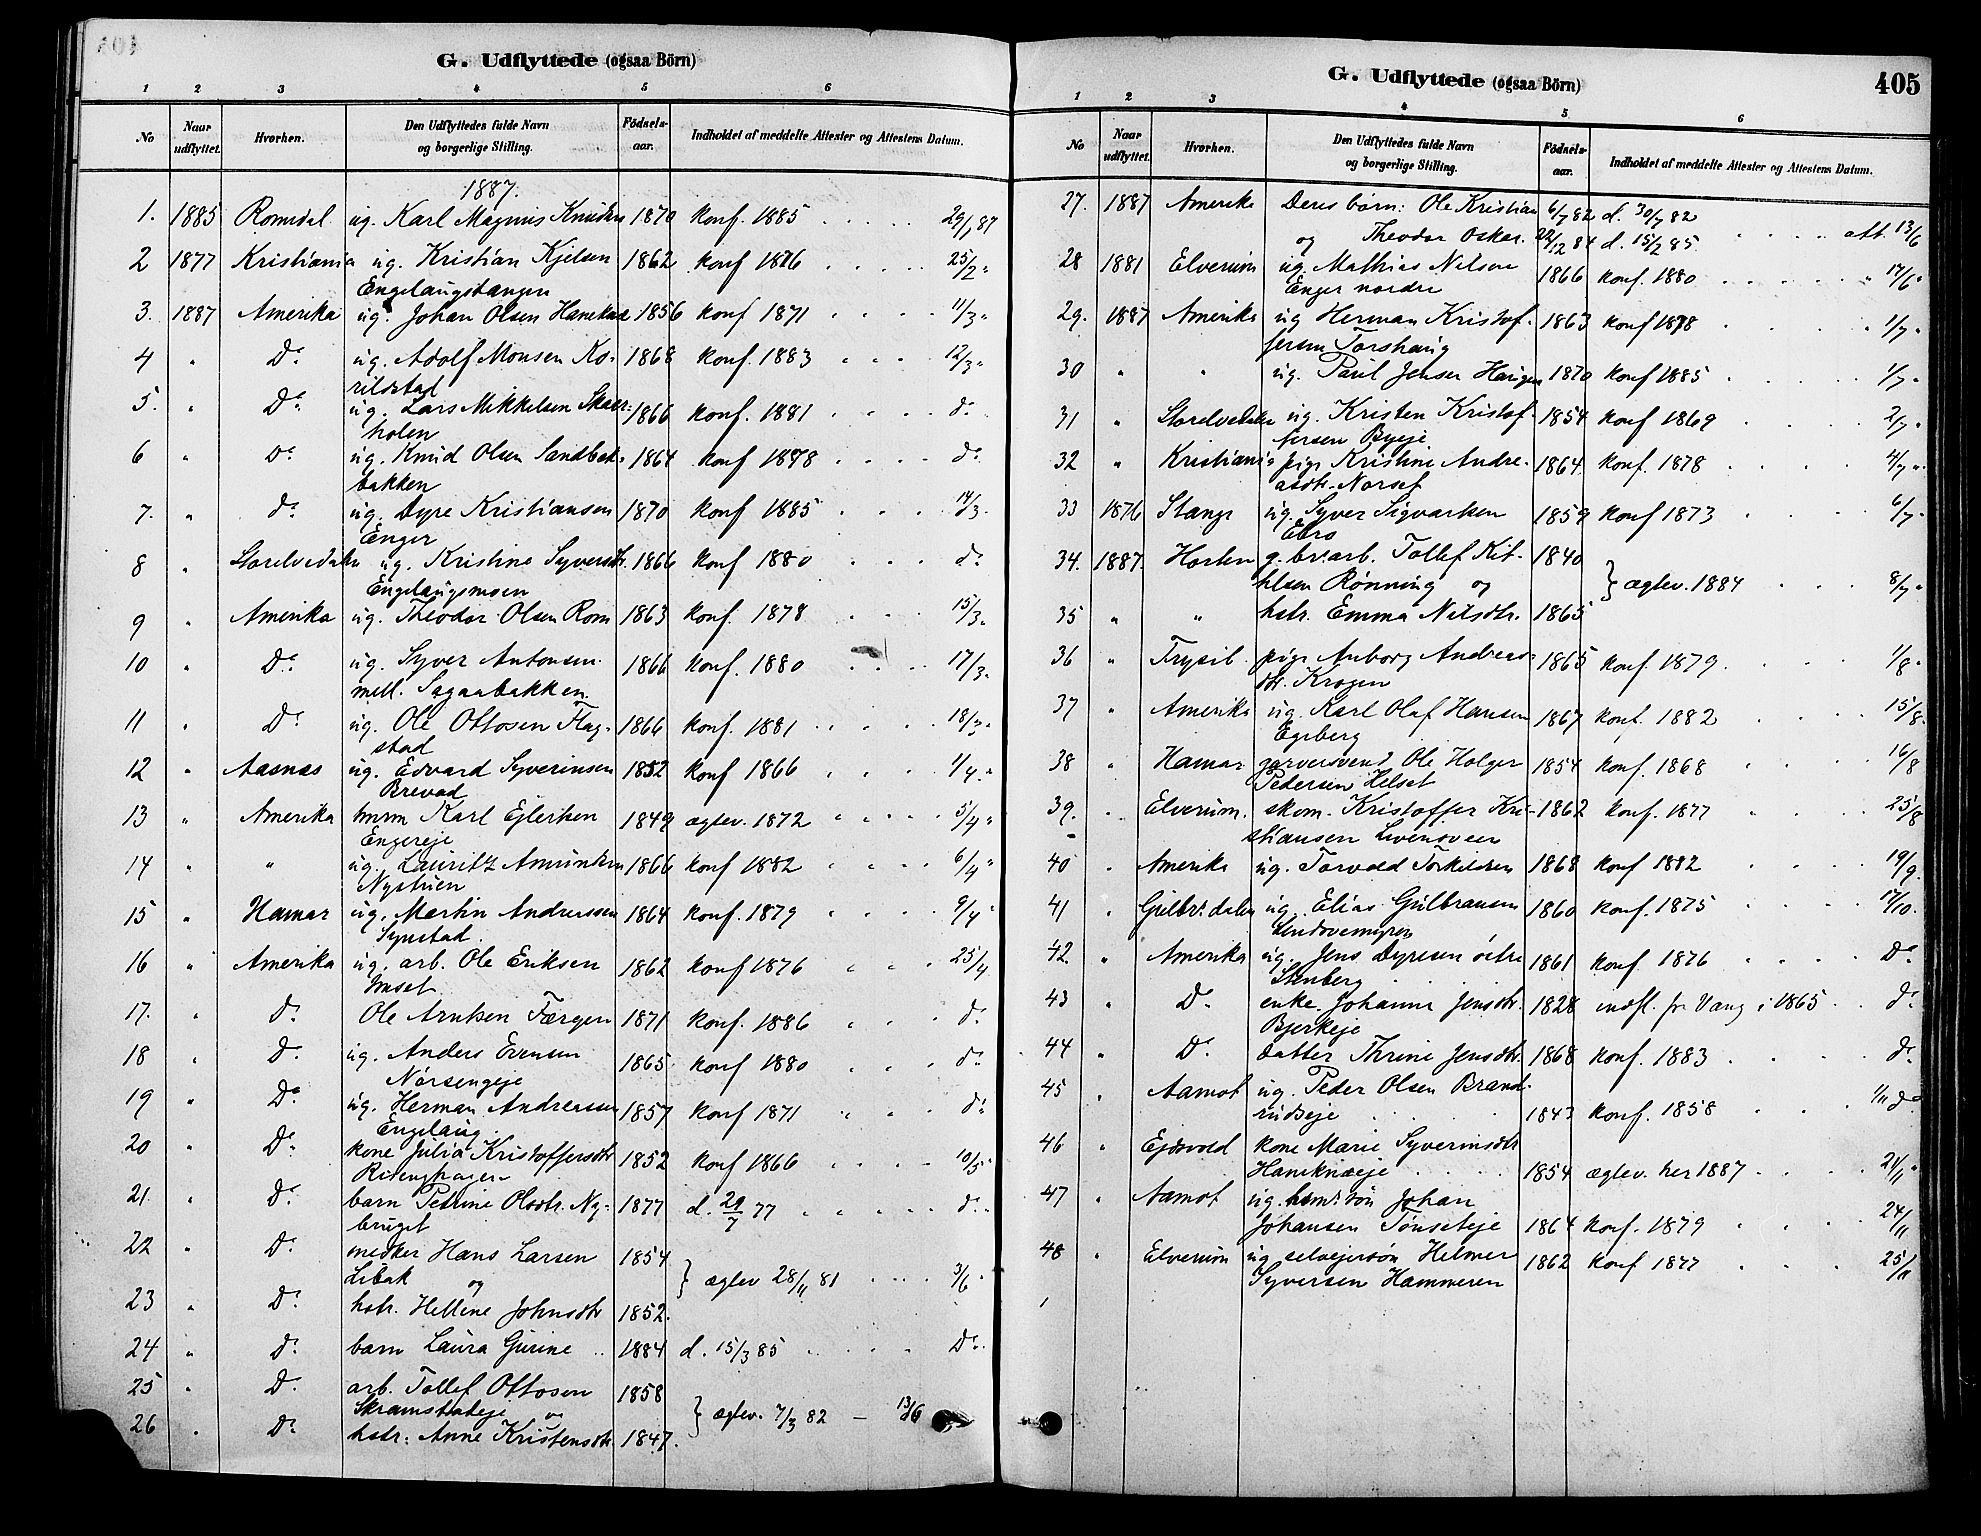 G. Udflyttede (ogsaa Börn)
1 2 3 4 5 6
No Naar udflyttet. Hvorhen. Den Udflyttedes fulde Navn og borgerlige Stilling. Födsels-aar. Indholdet af meddelte Attester og Attestens Datum.
1887.
1. 1885 Romsdal ug. Karl Magnus Knudsen 1870 konf. 1885 . . . 29/1 87
2 1877 Kristiania ug. Kristian Kjelsen 1862 konf 1876 . . . . . 25/2 "
Engelaugstangen
3. 1887 Amerika ug. Johan Olsen Hanekna 1856 konf 1871 . . . . 11/3 "
4 " Do ug. Adolf Monsen Ko- 1868 konf. 1883 . . . . 12/3 "
rilstad
5. " Do ug. Lars Mikkelsen Skaer- 1866 konf. 1881 . . . . do
holen
6 " Do ug. Knud Olsen Sandbak- 1864 konf 1878 . . . . do
bakken
7. " do ug. Dyre Kristiansen 1870 konf 1885 . . . . 14/3.
Enger
8 " Storelvedalen ug. Kristine Syversdtr. 1866 konf 1880 . . . do
Engelaugsmoen
9 " Amerika ug. Theodor Olsen Rom 1863 konf. 1878 . . . 15/3 "
10 " Do ug. Syver Antonsen 1866 konf. 1880 . . . 17/3 "
mell. Sagaabakken.
11 " Do ug. Ole Ottosen Flag- 1866 konf. 1881 . . . . 18/3 "
stad
12 " Aasnæs ug. Edvard Syverinsen 1852 konf 1866 . . . . 1/4 "
Brevad
13 " Amerika hmm Karl Ejlertsen 1849 ægtev. 1872 . . . . . 5/4 "
Engereje
14 " " ug. Lauritz Amundsen 1866 konf 1882 . . . . 6/4 "
Nystuen
15 " Hamar ug. Martin Andreassen 1864 konf. 1879 . . . . 9/4 "
Synstad.
16 " Amerika ug. arb. Ole Eriksen 1862 konf 1876 . . . 25/4
Imset
17. " do Ole Arntsen Færgen 1871 konf. 1886 . . . do
18 " do ug. Anders Evensen 1865 konf 1880 . . . do
Norsengeje
19 " Do ug. Herman Andreassen 1857 konf 1871 . . . do
Engelaug.
20 " Do kone Julia Kristoffersdtr 1852 konf 1866 . . . . 10/5 "
21. " Do barn Petrine Olsdtr. Ny- 1877 d. 29/7 77 . . . . . do
bruget
22 " Do snedker Hans Larsen 1854
Libak og } ægtev 28/11 81 . . . . 3/6 "
23 " Do hstr. Helline Johnsdtr 1852.
24 " Do barn Laura Gurine .. 1884 d. 15/3 85 . . . . . Do
25 " Do arb. Tollef Ottosen 1858
Skramstadeje og } ægtev. 7/3 82 — 13/6
26 " Do hstr. Anne Kristensdtr 1847.
G. Udflyttede (ogsaa Börn) 405
1 2 3 4 5 6
No Naar udflyttet. Hvorhen. Den Udflyttedes fulde Navn og borgerlige Stilling. Födsels-aar. Indholdet af meddelte Attester og Attestens Datum.
27. 1887 Amerika Deres børn: Ole Kristian 6/7 82 d. 30/7 82
og Theodor Oskar. 22/12 84 d. 15/2 85. . . . . att. 13/6
28 1881 Elverum ug. Mathias Nilsen 1866 konf. 1880 . . . . . " 14/6 "
Enger nordre
29. 1887 Amerika ug Herman Kristof- 1863 konf 1878 . . . . " 1/7 "
fersen Torshaug
30 " " ug. Paul Jensen Haugen 1870 konf 1885 . . . . . 1/7 "
31 " Storelvedalen ug. Kristen Kristof- 1854 konf 1869 . . . . 2/7 "
fersen Byeje
32 " Kristiania pige Kristine Andre- 1864. konf. 1878 . . . . . 4/7 "
asdtr. Norset
33 1876 Stange ug. Syver Sigvartsen 1859 konf 1873 . . . . 6/7 "
Ebro
34. 1887. Horten g. brv.arb. Tollef Kit- 1840
telsen Rønning og } ægtev. 1884 . . . 8/7 "
35 " " hstr. Emma Nilsdtr. 1865
36 " Trysil pige Anborg Andreas- 1865 konf. 1879. . . . . 1/8 "
dtr. Krogen
37 " Amerika ug. Karl Olaf Hansen 1867 konf. 1882 . . . . 15/8.
Egeberg
38 " Hamar garversvend Ole Holger 1854 konf. 1868 . . . . 16/8
Pedersen Helset
39. " Elverum. skom. Kristoffer Kri- 1862 konf. 1877 . . . . 25/8
40 " Amerika ug. Torvald Torkildsen 1868 konf 1882 . . . . 19/9.
41 " Gulbr.dalen ug. Elias Gulbransen 1860 konf. 1875 . . . . . 17/10.
42 " Amerika ug. Jens Dyresen østre 1861 konf. 1876 . . . . . Do
Stenberg
43 " Do enke Johanne Jensdtr. 1828 indfl. fr Vang i 1865 . . do
Bjerkeje
44 " Do datter Thrine Jensdtr. 1868 konf. 1883 . . . . do
45 " Aamot ug. Peder Olsen Brand-
rudseje . . . 1843 konf. 1858 . . . . 1/11 do
46 " Ejdsvold kone Marie Syverinsdtr
Haneknæeje . . . . 1854 ægtev. her 1887 . . . . . 21/11 "
47 " Aamot ug. hsmd.søn Johan
Johansen Tønseteje 1864 konf. 1879 . . . . 24/11
48 " Elverum ug selvejersøn Helmer 1862 konf 1877 . . . . 25/11
Syversen Hammeren